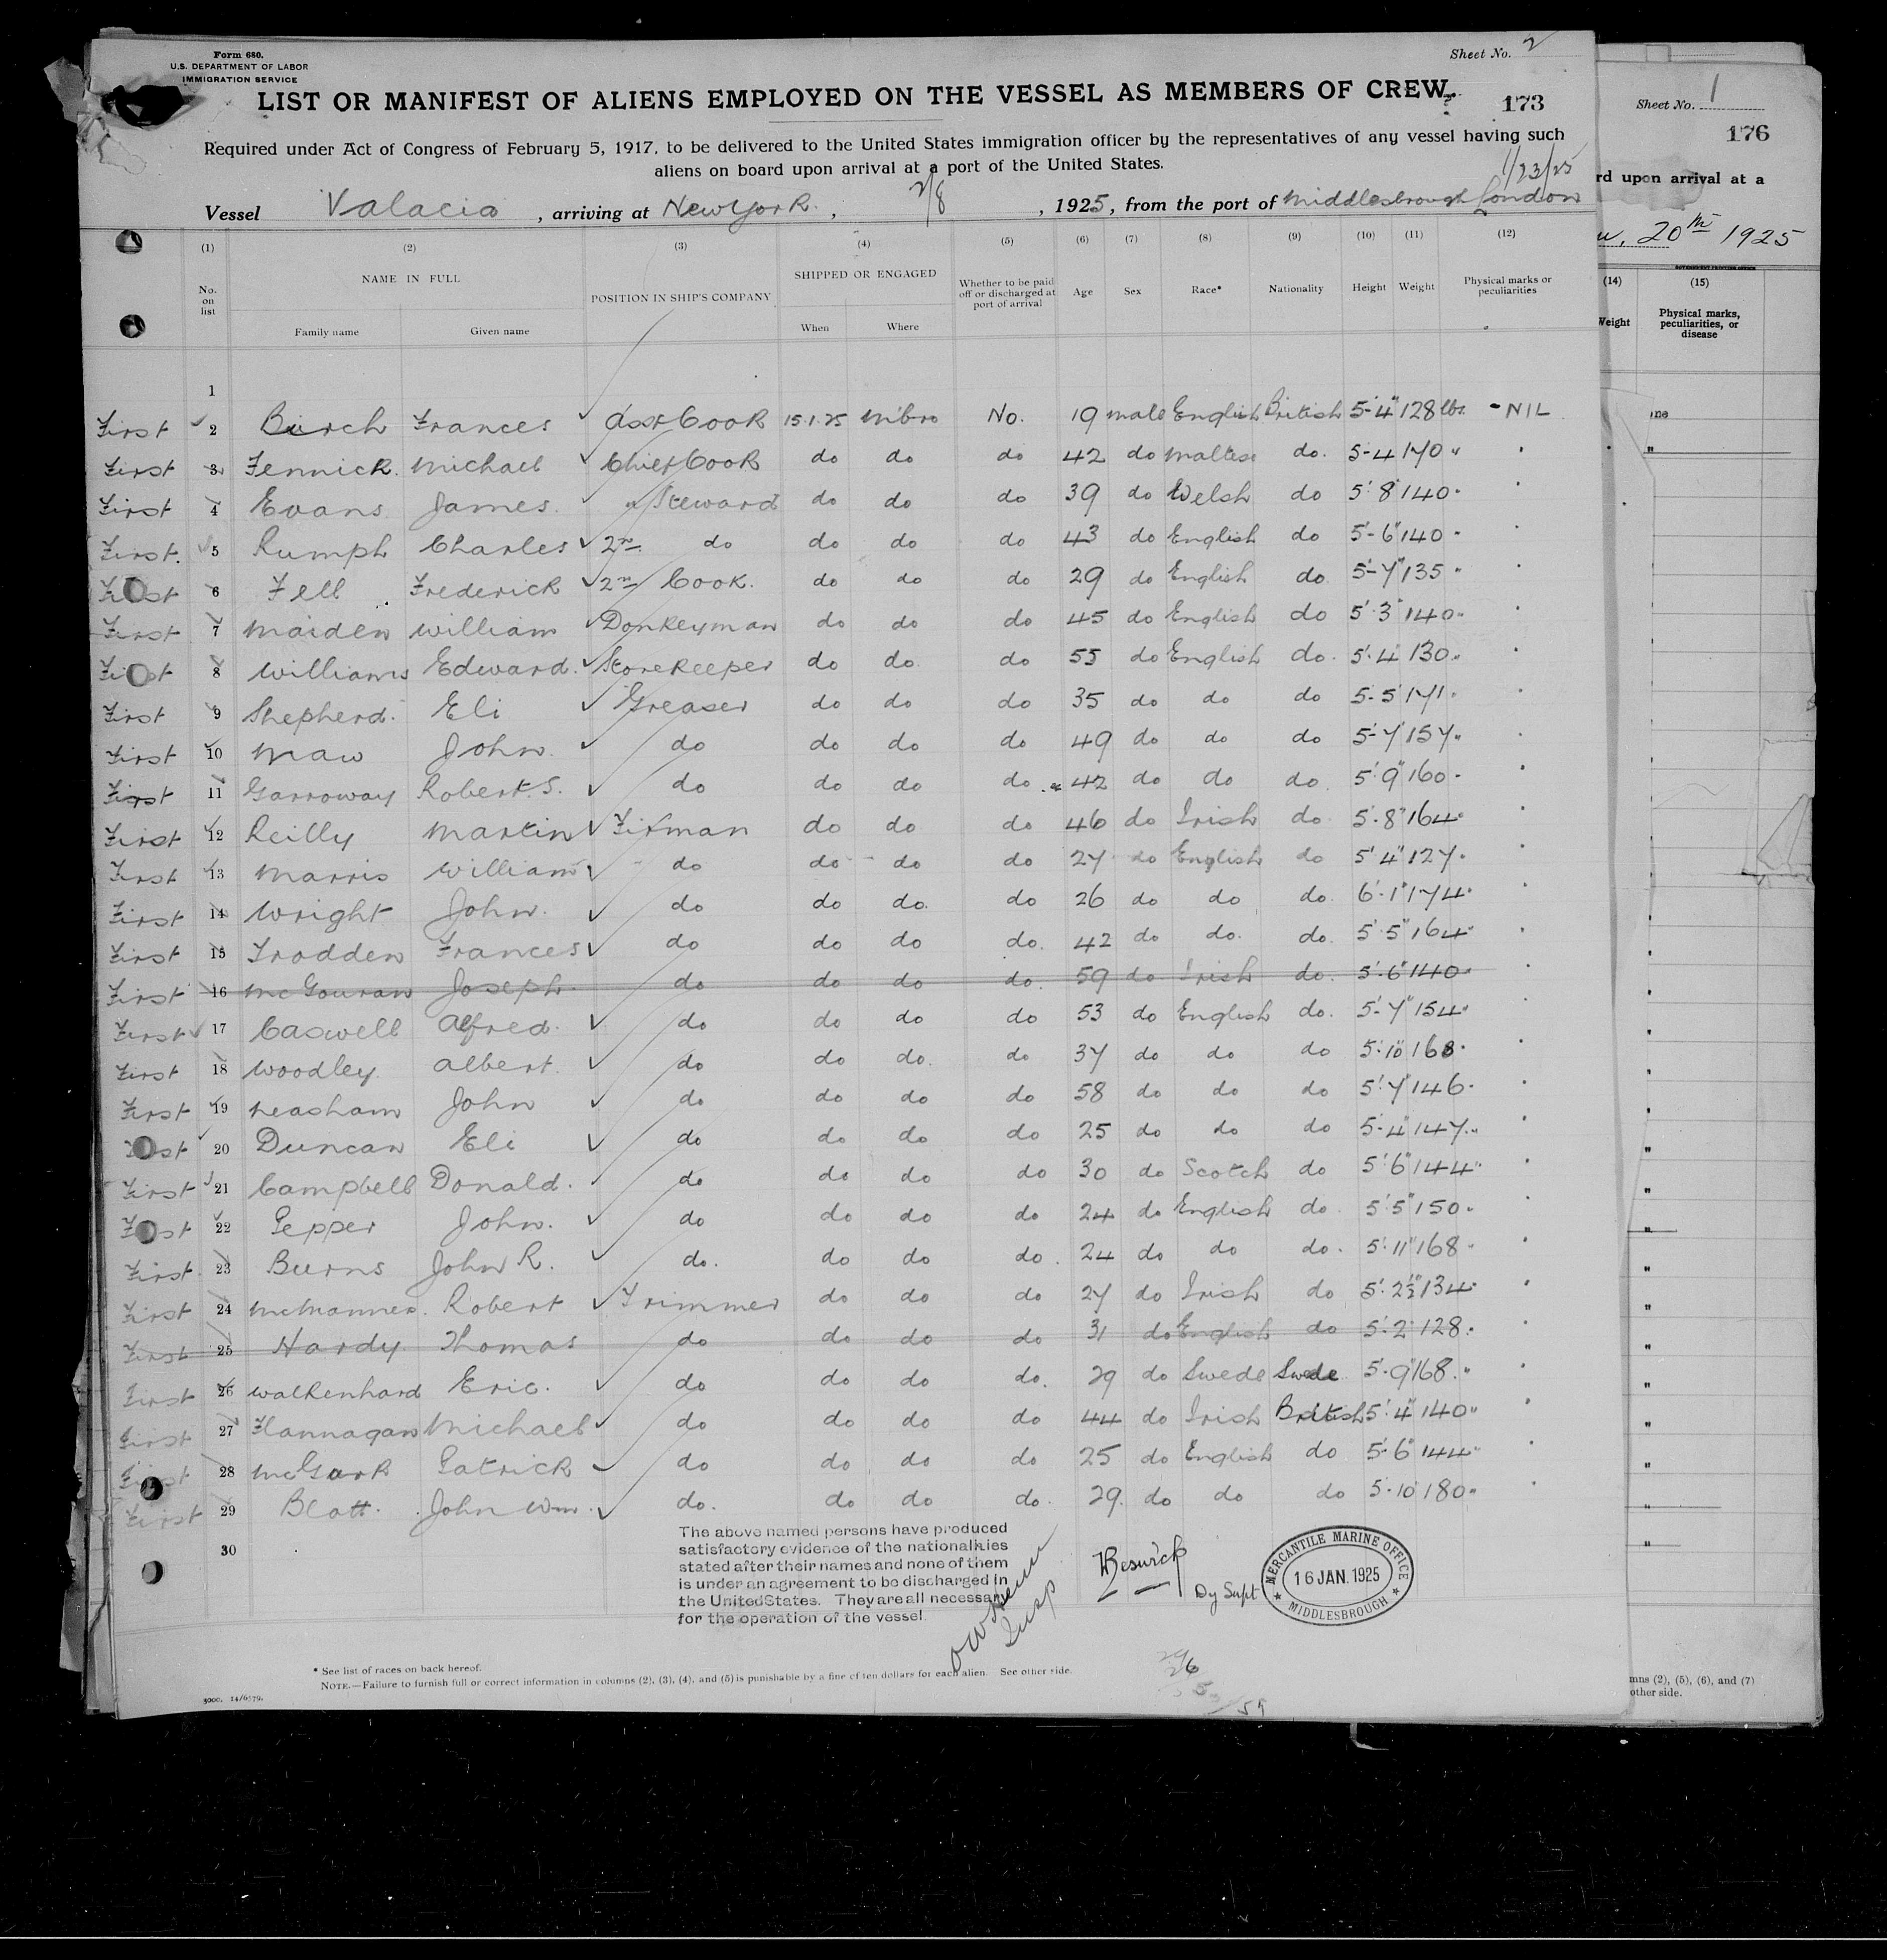 Form 680.
U.S. DEPARTMENT OF LABOR
IMMIGRATION SERVICE
Sheet No. 2
LIST OR MANIFEST OF ALIENS EMPLOYED ON THE VESSEL AS MEMBERS OF CREW.
173
Required under Act of Congress of February 5, 1917, to be delivered to the United States immigration officer by the representatives of any vessel having such
aliens on board upon arrival at a port of the United States.
1/23/25
Vessel Valacia, arriving at New York, 2/8, 1925, from the port of Middlesbrough London
(1) (2) (3) (4) (5) (6) (7) (8) (9) (10) (11) (12)
No. on list NAME IN FULL POSITION IN SHIP'S COMPANY SHIPPED OR ENGAGED Whether to be paid off or discharged at port of arrival Age Sex Race* Nationality Height Weight Physical marks or peculiarities
Family name Given name When Where
1
First 2 Birch Frances Asst Cook 15.1.25 M'bro No. 19 male English British 5-4" 128 lbs. - NIL
First 3 Fennick Michael Chief Cook do do do 42 do Maltese do. 5-4 170 "
First 4 Evans James " Steward do do do 39 do Welsh do 5'8" 140 "
First 5 Rumph Charles 2nd do do do do 43 do English do 5-6" 140 "
First 6 Fell Frederick 2nd Cook. do do do 29 do English do 5-7" 135 "
First 7 Maiden William Donkeyman do do do 45 do English do 5'3" 140 "
First 8 Williams Edward Storekeeper do do do 55 do English do. 5'.4 130 "
First 9 Shepherd Eli Greaser do do do 35 do do do 5-5' 171 "
First 10 Maw John do do do do 49 do do do 5-7' 157 "
First 11 Garroway Robert S. do do do do 42 do do do 5'9" 160 "
First 12 Reilly Martin Firman do do do 46 do Irish do 5'.8" 164 "
First 13 Marris William do do do do 27 do English do 5'4" 127 "
First 14 Wright John do do do. do 26 do do do. 6'-1" 174 "
First 15 Trodden Frances do do do do. 42 do do. do. 5'5" 164 "
First 16 McGouran Joseph do do do do. 59 do Irish do. 5'.6" 140 "
First 17 Caswell Alfred. do do do do 53 do English do. 5'-7" 154 "
First 18 Woodley Albert. do do do. do 37 do do do 5'.10" 168 "
First 19 Neasham John do do do do 58 do do do 5'.7" 146 "
First 20 Duncan Eli do do do do 25 do do do 5'-4" 147 "
First 21 Campbell Donald. do do do do 30 do Scotch do 5'6" 144 "
First 22 Pepper John. do do do do 24 do English do 5'5" 150 "
First 23 Burns John R. do. do do do. 24 do do do. 5'.11" 168 "
First 24 McManners Robert Trimmer do do do 27 do Irish do 5'.2½" 134 "
First 25 Hardy Thomas do do do do 31 do English do 5'.2" 128 "
First 26 Walkenhard Eric. do do do do. 29 do Swede Swede 5'-9" 168 "
First 27 Flannagan Michael do do do do 44 do Irish British 5'.4" 140 "
First 28 McGurk Patrick do do do do 25 do English do 5'-6" 144 "
First 29 Blatt. John Wm. do. do do do. 29. do do do 5-10 180 "
30
The above named persons have produced
satisfactory evidence of the nationalities
stated after their names and none of them
is under an agreement to be discharged in
the United States. They are all necessary
for the operation of the vessel.
Insp
Beswick
Dy Supt
MERCANTILE MARINE OFFICE
16 JAN. 1925
MIDDLESBROUGH
* See list of races on back hereof.
NOTE.—Failure to furnish full or correct information in columns (2), (3), (4), and (5) is punishable by a fine of ten dollars for each alien. See other side.
26
59
Sheet No. 1
176
rd upon arrival at a
20th 1925
(14) (15)
Weight Physical marks, peculiarities, or disease
mns (2), (5), (6), and (7)
other side.